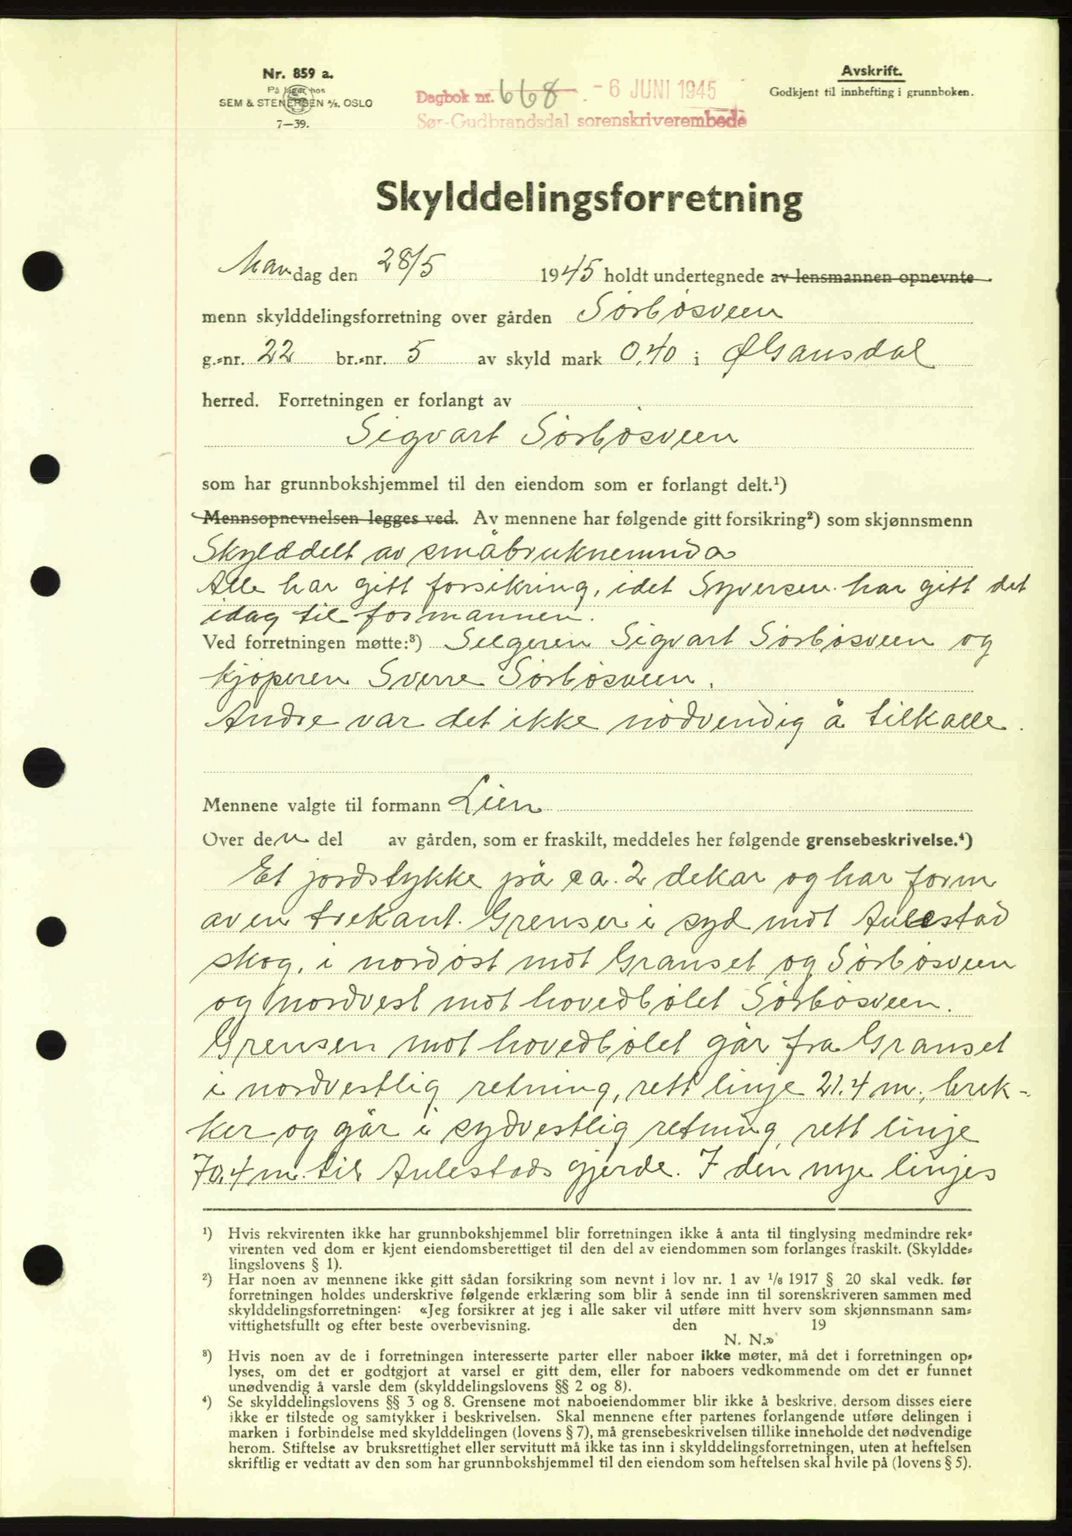 Nr. 859 a.
På lager hos
SEM & STENERSEN A/S. OSLO
7—39.
Dagbok nr. 668 - 6 JUNI 1945
Sør-Gudbrandsdal sorenskriverembede
Avskrift.
Godkjent til innhefting i grunnboken.
Skylddelingsforretning
Mandag den 28/5 1945 holdt undertegnede av lensmannen opnevnte
menn skylddelingsforretning over gården Sørbøsveen
g.-nr. 22 br.-nr. 5 av skyld mark 0,40 i Ø Gausdal
herred. Forretningen er forlangt av
Sigvart Sørbøsveen
som har grunnbokshjemmel til den eiendom som er forlangt delt.¹)
Mennsopnevnelsen legges ved. Av mennene har følgende gitt forsikring²) som skjønnsmenn
Skylddelt av småbruknemnda
Alle har gitt forsikring, idet Syversen har gitt det
idag til formannen.
Ved forretningen møtte:³) Selgeren Sigvart Sørbøsveen og
kjøperen Sverre Sørbøsveen.
Andre var det ikke nødvendig å tilkalle.
Mennene valgte til formann Lien
Over den del av gården, som er fraskilt, meddeles her følgende grensebeskrivelse.⁴)
Et jordstykke på ca. 2 dekar og har form
av en trekant. Grenser i syd mot Aulestad
skog, i nordøst mot Granset og Sørbøsveen
og nordvest mot hovedbølet Sørbøsveen.
Grensen mot hovedbølet går fra Granset
i nordvestlig retning, rett linje 21.4 m, brek-
ker og går i sydvestlig retning, rett linje
70.4 m. til Aulestads gjerde. I den nye linjes
¹) Hvis rekvirenten ikke har grunnbokshjemmel blir forretningen ikke å anta til tinglysing medmindre rek-
virenten ved dom er kjent eiendomsberettiget til den del av eiendommen som forlanges fraskilt. (Skyldde-
lingslovens § 1).
²) Har noen av mennene ikke gitt sådan forsikring som nevnt i lov nr. 1 av 1/6 1917 § 20 skal vedk. før
forretningen holdes underskrive følgende erklæring som blir å sende inn til sorenskriveren sammen med
skylddelingsforretningen: «Jeg forsikrer at jeg i alle saker vil utføre mitt hverv som skjønnsmann sam-
vittighetsfullt og efter beste overbevisning. den 19
N. N.»
³) Hvis noen av de i forretningen interesserte parter eller naboer ikke møter, må det i forretningen op-
lyses, om det er godtgjort at varsel er gitt dem, eller for naboers vedkommende om det er funnet
unødvendig å varsle dem (skylddelingslovens §§ 2 og 8).
⁴) Se skylddelingslovens §§ 3 og 8. Grensene mot naboeiendommer blir ikke å beskrive, dersom disses eiere
ikke er tilstede og samtykker i beskrivelsen. Skal mennene efter partenes forlangende utføre delingen i
marken i forbindelse med skylddelingen (lovens § 7), må grensebeskrivelsen tillike inneholde det nødvendige
herom. Stiftelse av bruksrettighet eller servitutt må ikke tas inn i skylddelingsforretningen, uten at heftelsen
skriftlig er vedtatt av den som har grunnbokshjemmel til den eiendom som heftelsen skal hvile på (lovens § 5).